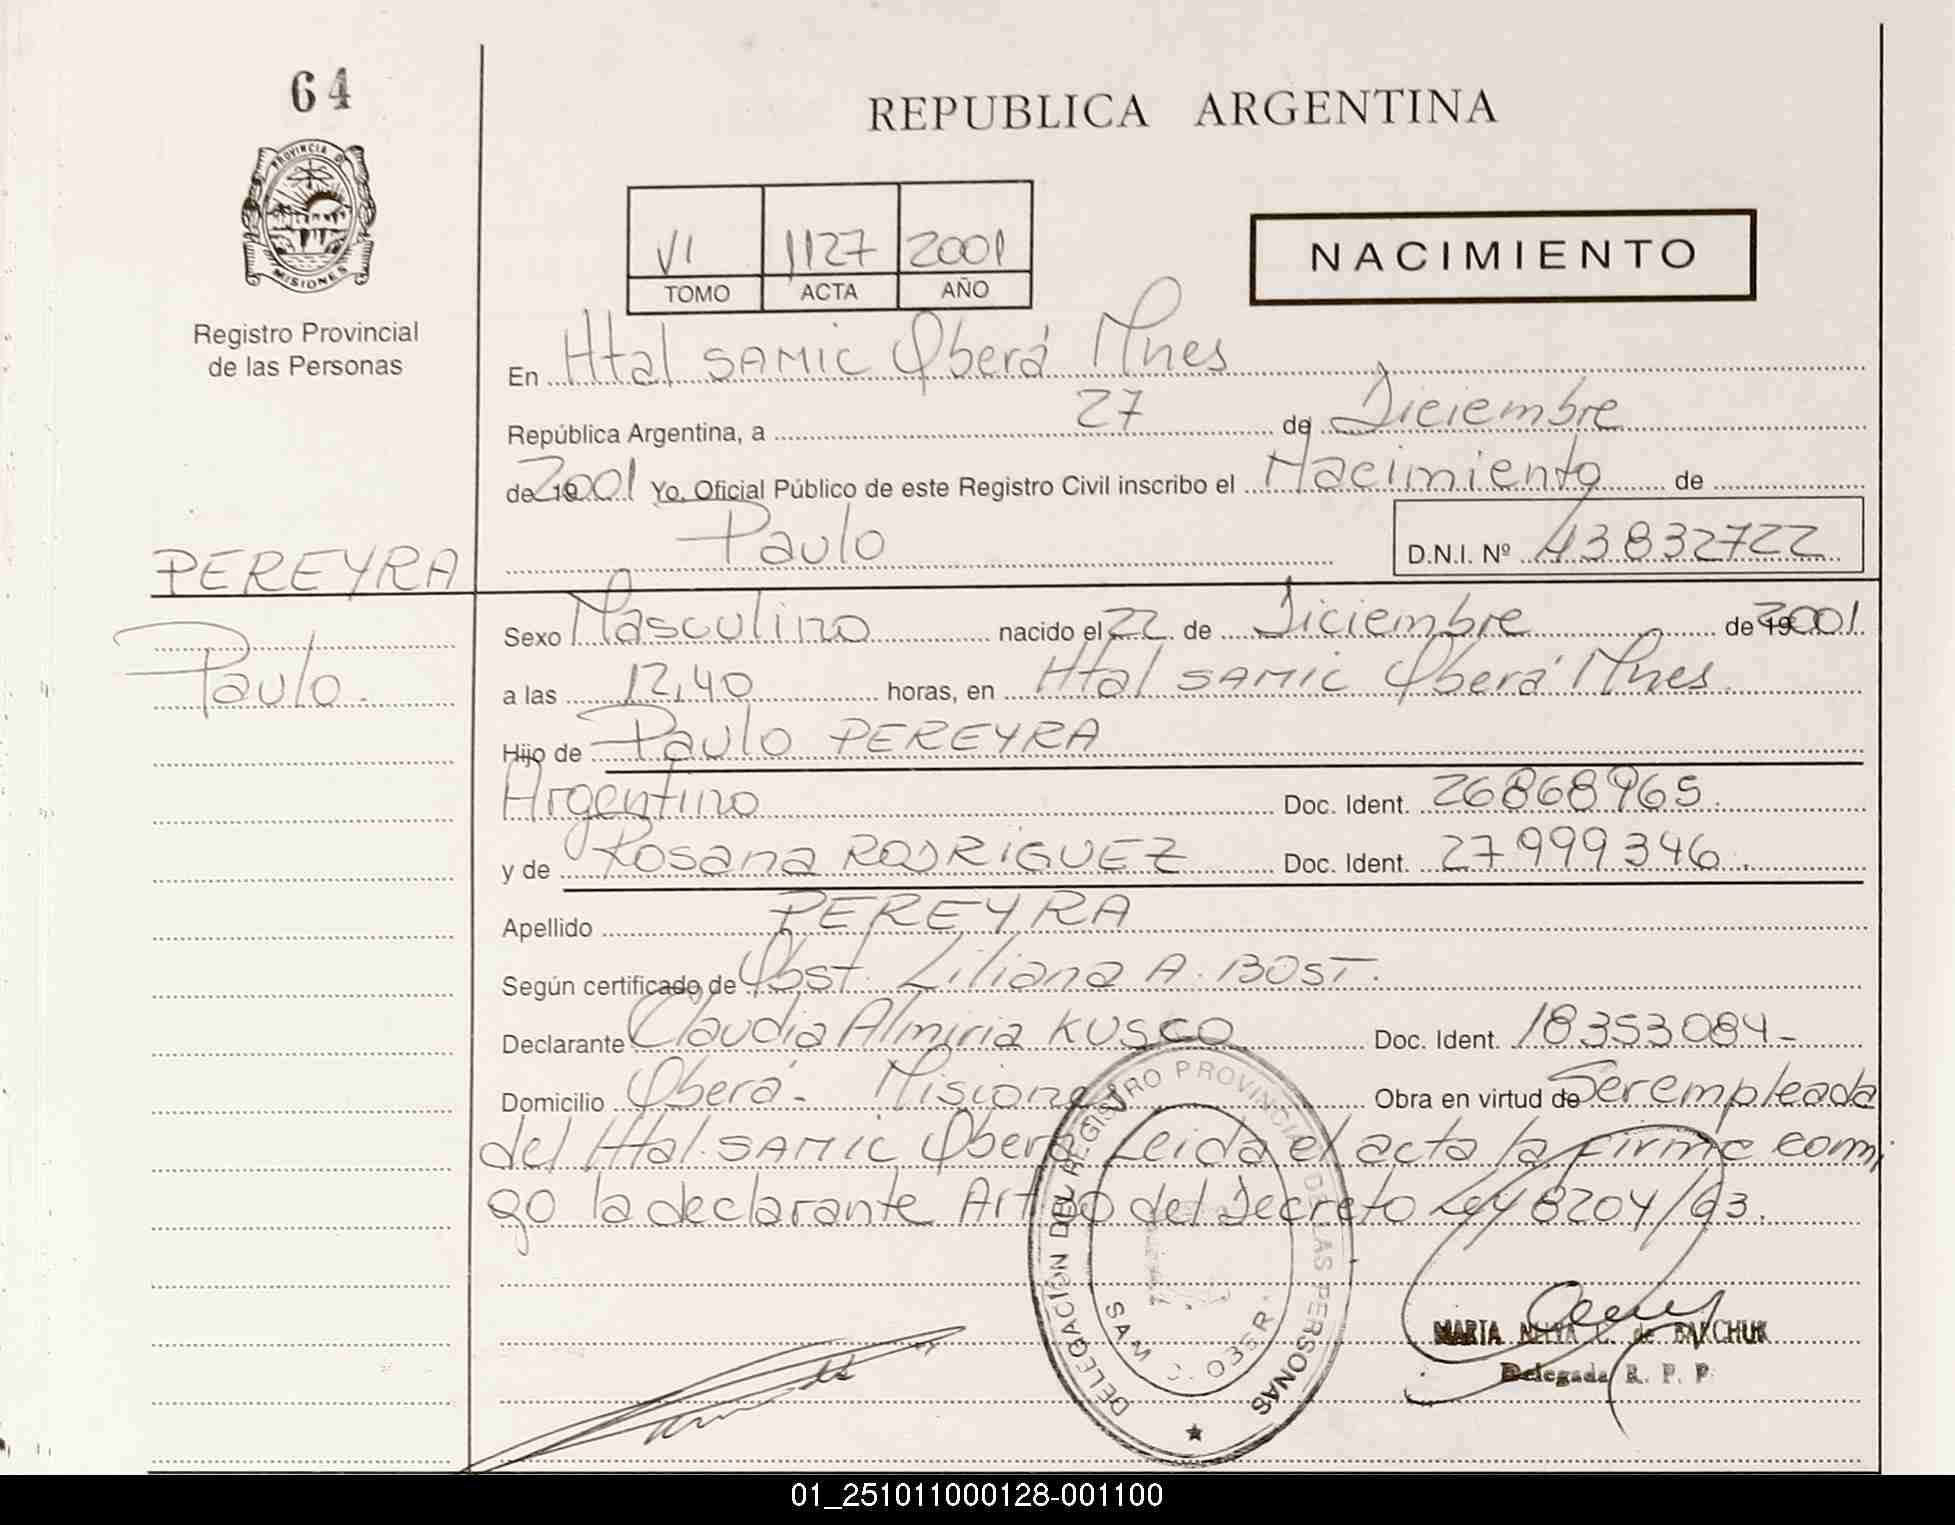 64
REPUBLICA ARGENTINA
PROVINCIA D
MISIONES
Registro Provincial
de las Personas
VI 1127 2001
TOMO ACTA AÑO
NACIMIENTO
En Htal SAMIC Oberá Mnes
República Argentina, a 27 de Diciembre
de 2001 Yo, Oficial Público de este Registro Civil inscribo el Nacimiento de
Paulo D.N.I. Nº 43832722
PEREYRA
Paulo.
Sexo Masculino nacido el 22 de Diciembre de 2001
a las 12,40 horas, en Htal SAMIC Oberá Mnes.
Hijo de Paulo PEREYRA
Argentino Doc. Ident. 26868965.
y de Rosana RODRIGUEZ Doc. Ident. 27999346.
Apellido PEREYRA
Según certificado de Obst. Liliana A. BOST.
Declarante Claudia Almiria KUSCO Doc. Ident. 18353084-
Domicilio Oberá - Misiones Obra en virtud de Ser empleada
del Htal. SAMIC Oberá Leida el acta la firma conmi
go la declarante Art del Decreto Ley 8204/63.
DELEGACIÓN DEL REGISTRO PROVINCIAL DE LAS PERSONAS
MARTA C. de BARCHUK
Delegada R. P. P.
01_251011000128-001100